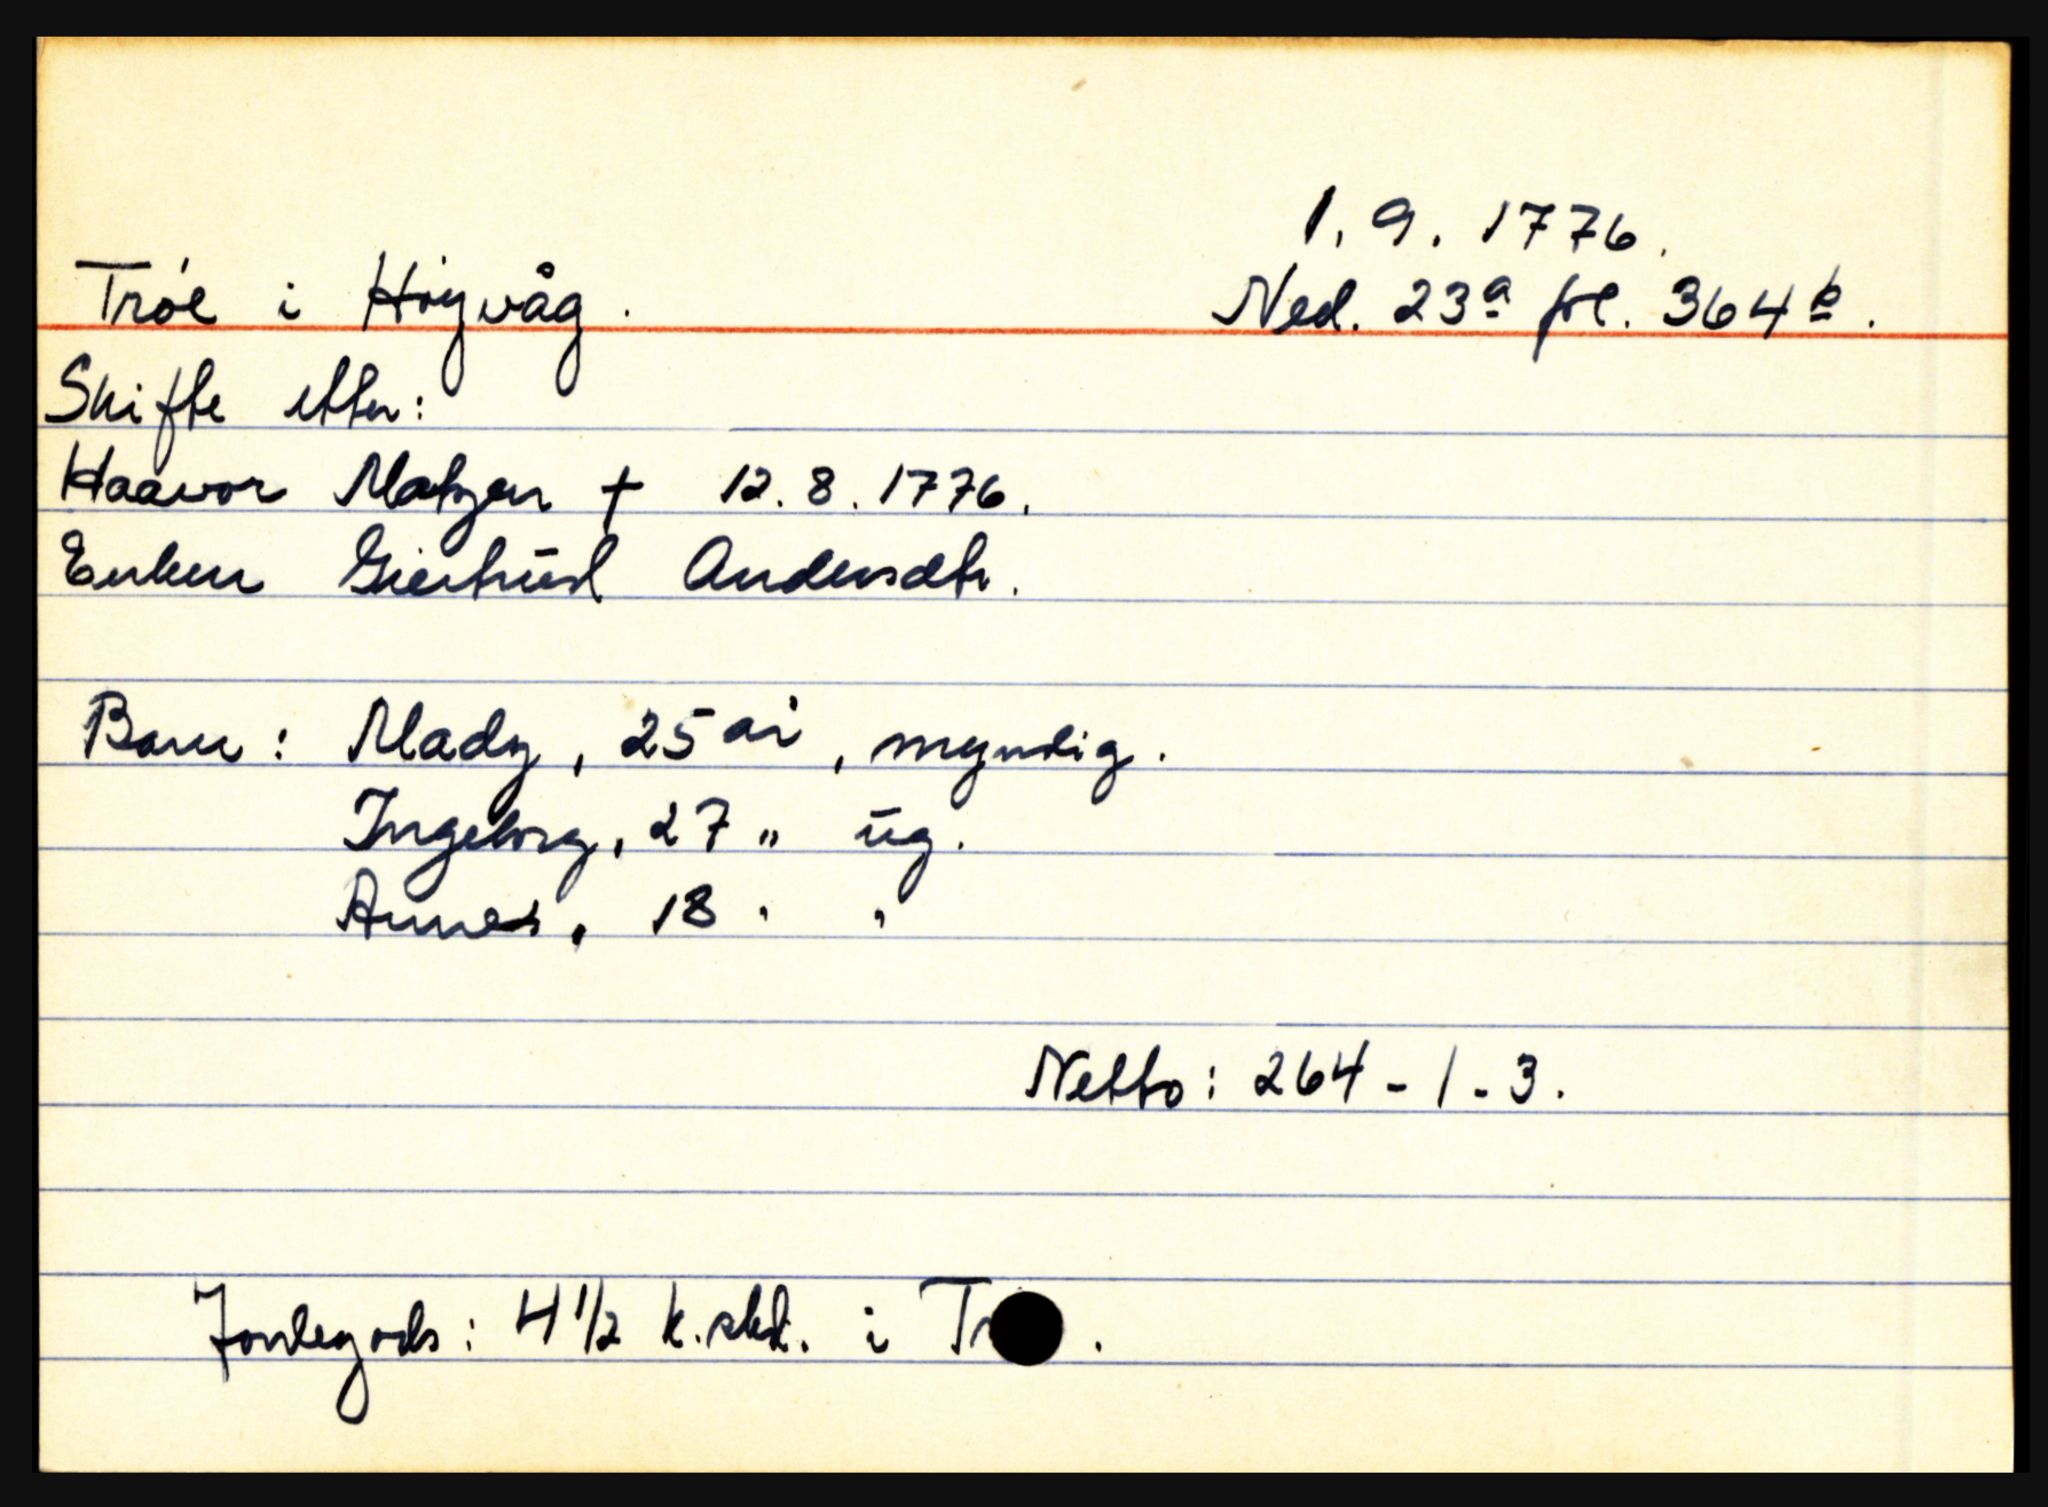 1.9.1776.
Tróe i Høyvåg.
Ned. 23a fol. 364b.
Skifte etter:
Haavor Madzen † 12.8.1776.
Enken Giertrud Andersdtr.
Barn: Mads, 25 år, myndig.
Ingeborg, 27 " ug.
Anne, 18 " "
Netto: 264-1-3.
Jordegods: 4 1/2 k.skd. i